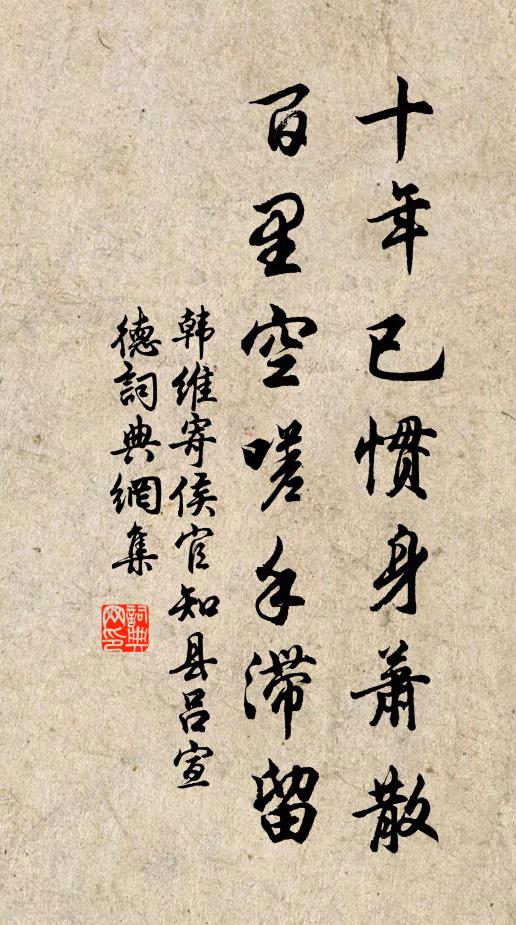 十年已慣身蕭散
百里空嗟子滯留
韩維寄侯官知县吕宣
德詞典網集
詞典
网印